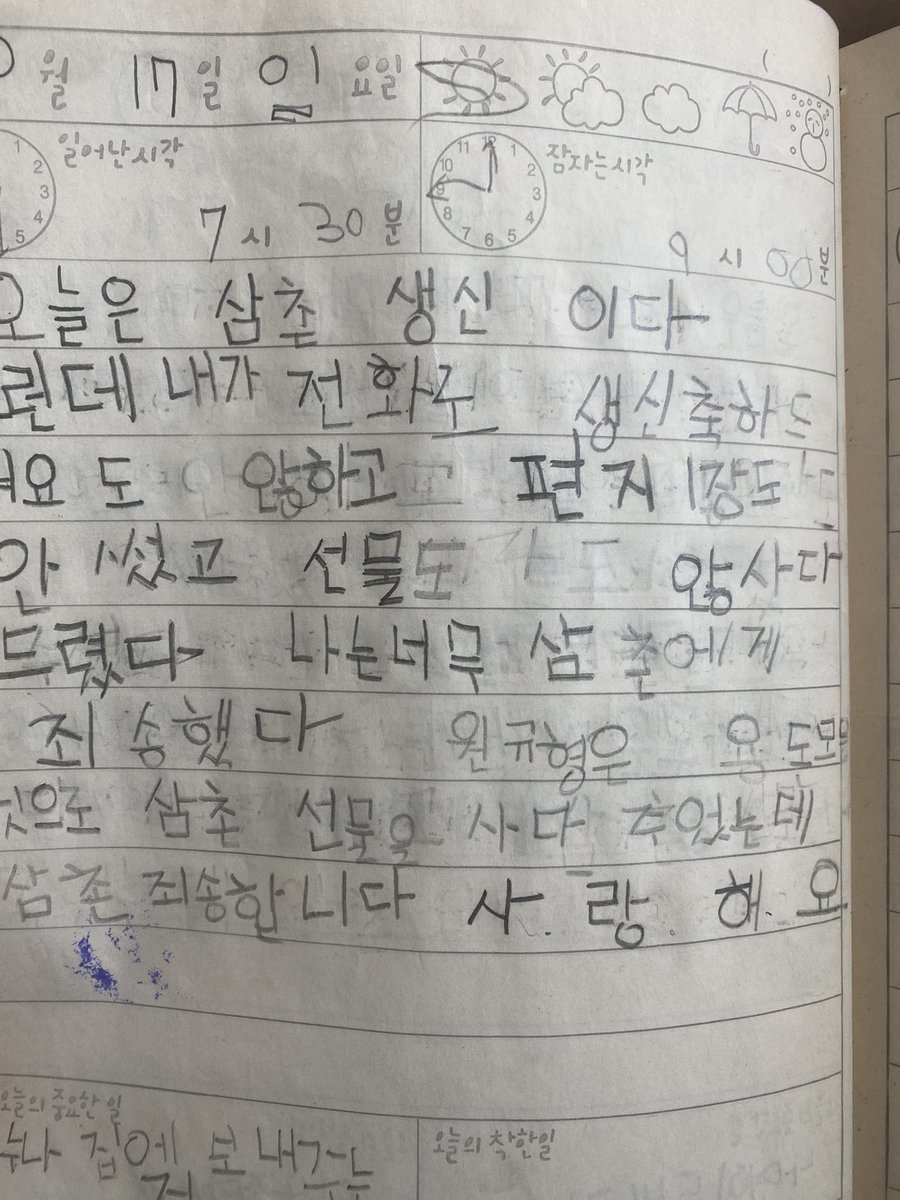 월 17일 일 요일
일어난시각 11 12 1 2 3 4 5 6 7 8 9 10 잠자는시각
7시 30분 9시 00분
오늘은 삼촌 생신 이다
린데 내가 전화루 생신축하드
여요 도 않하고 편지 1장도
안 썼고 선물도 않사다
드렸다 나는너무 삼촌에게
죄송했다 원규형은 용도모은
것으로 삼촌 선물을 사다 주었는데
삼촌 죄송합니다 사.랑.해.요
오늘의 중요한 일 오늘의 착한일
누나 집에 보내주는